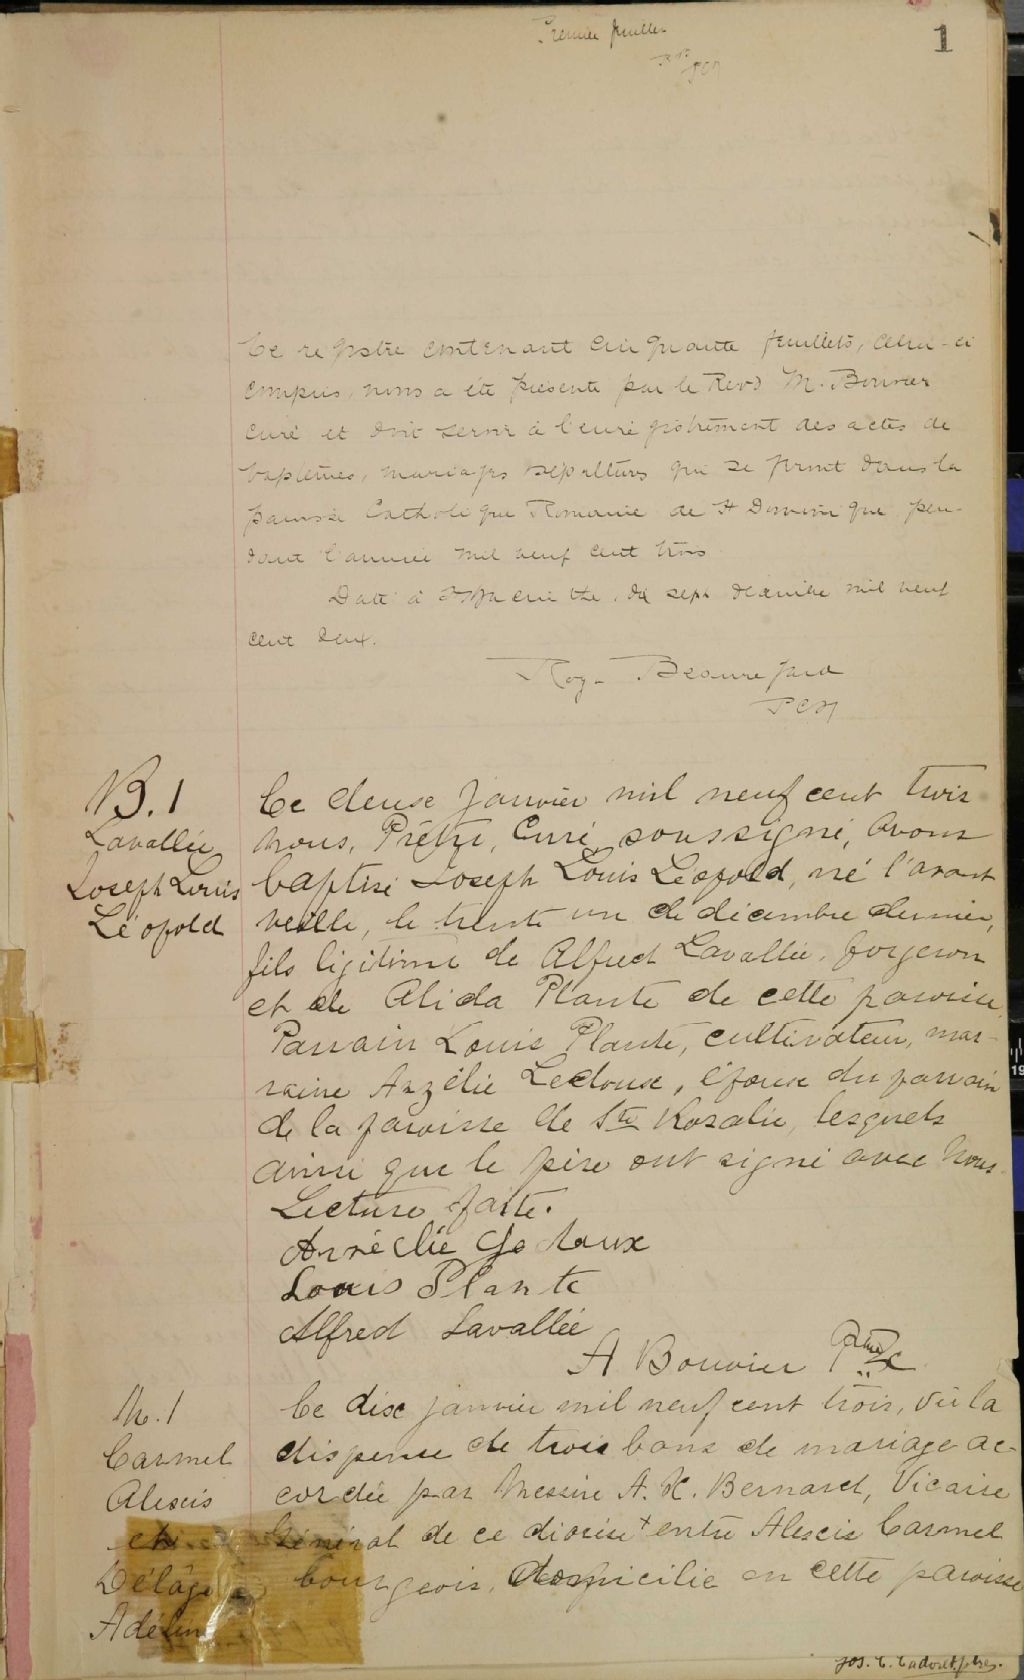 Premier feuillet
1
Ce registre contenant cinquante feuillets, celui-ci
compris, nous a été présenté par le Revd M. Bouvier
curé et doit servir à l'enregistrement des actes de
baptêmes, mariages sépultures qui se feront dans la
paroisse Catholique Romaine de St Dominique pen-
dant l'année mil neuf cent trois
Daté à St Hyacinthe, le sept décembre mil neuf
cent deux.
Roy. Beauregard
PCS
B. 1
Lavallée
Joseph Louis
Léopold
Ce deuse janvier mil neuf cent trois
nous, Prêtre, Curé, soussigné, avons
baptisé Joseph Louis Léopold, né l'avant
veille, le trente un de décembre dernier,
fils légitime de Alfred Lavallée, forgeron
et de Alida Plante de cette paroisse.
Parrain Louis Plante, cultivateur, mar-
raine Azélie Ledoux, épouse du parrain
de la paroisse de Ste Rosalie, lesquels
ainsi que le père ont signé avec nous.
Lecture faite.
Louis Plante
Alfred Lavallée
A Bouvier Ptre
M. 1
Carmel
Alexis
et
Délâge
Adéline
Ce dix janvier mil neuf cent trois, vu la
dispense de trois bans de mariage ac-
cordée par Messire A. X. Bernard, Vicaire
Général de ce diocèse + entre Alexis Carmel
bourgeois, domicilié en cette paroisse
Jos. C. Cadoret, ptre.